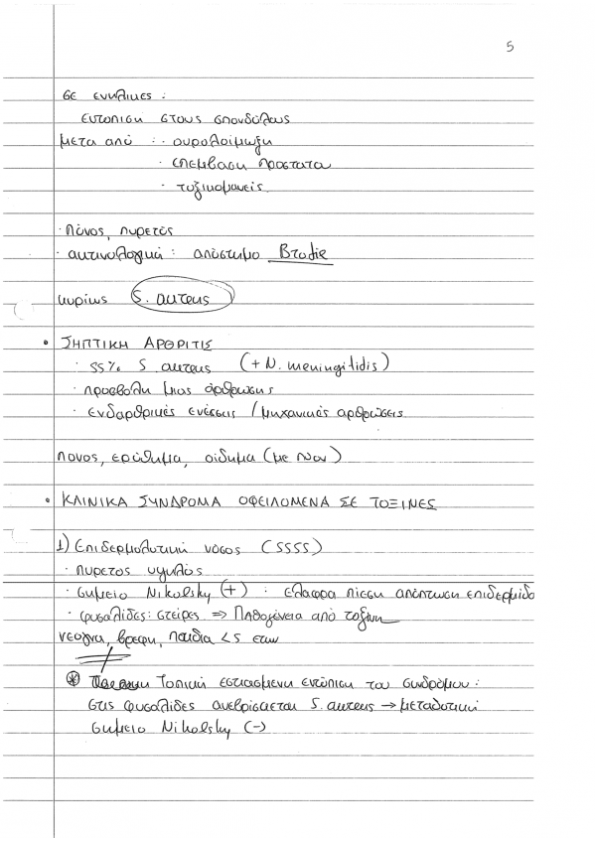 5
σε ενηλικες :
εντοπιση στους σπονδυλους
μετα από : · ουρολοιμωξη
· επεμβαση προστατα
· τοξικομανεις
· Πόνος, πυρετός
· ακτινολογικά : απόστημα Brodie
κυρίως S. aureus
• ΣΗΠΤΙΚΗ ΑΡΘΡΙΤΙΣ
· 55% S. aureus (+ N. meningitidis)
· προσβολη μιας άρθρωσης
· ενδαρθρικές ενέσεις / μηχανικές αρθρώσεις
πονος, ερύθημα, οίδημα (με πυον)
• ΚΛΙΝΙΚΑ ΣΥΝΔΡΟΜΑ ΟΦΕΙΛΟΜΕΝΑ ΣΕ ΤΟΞΙΝΕΣ
1) Επιδερμολυτική νόσος (SSSS)
· πυρετος υψηλός
· σημειο Nikolsky (+) : ελαφρα πιεση απόπτωση επιδερμιδο
· φυσαλίδες : στείρες ⇒ Παθογένεια από τοξινη
νεογνα, βρεφη, παιδια < 5 ετων
Τοπική εστιασμενη εντόπιση του συνδρόμου :
στις φυσαλίδες ανευρίσκεται S. aureus → μεταδοτική
σημειο Nikolsky (-)